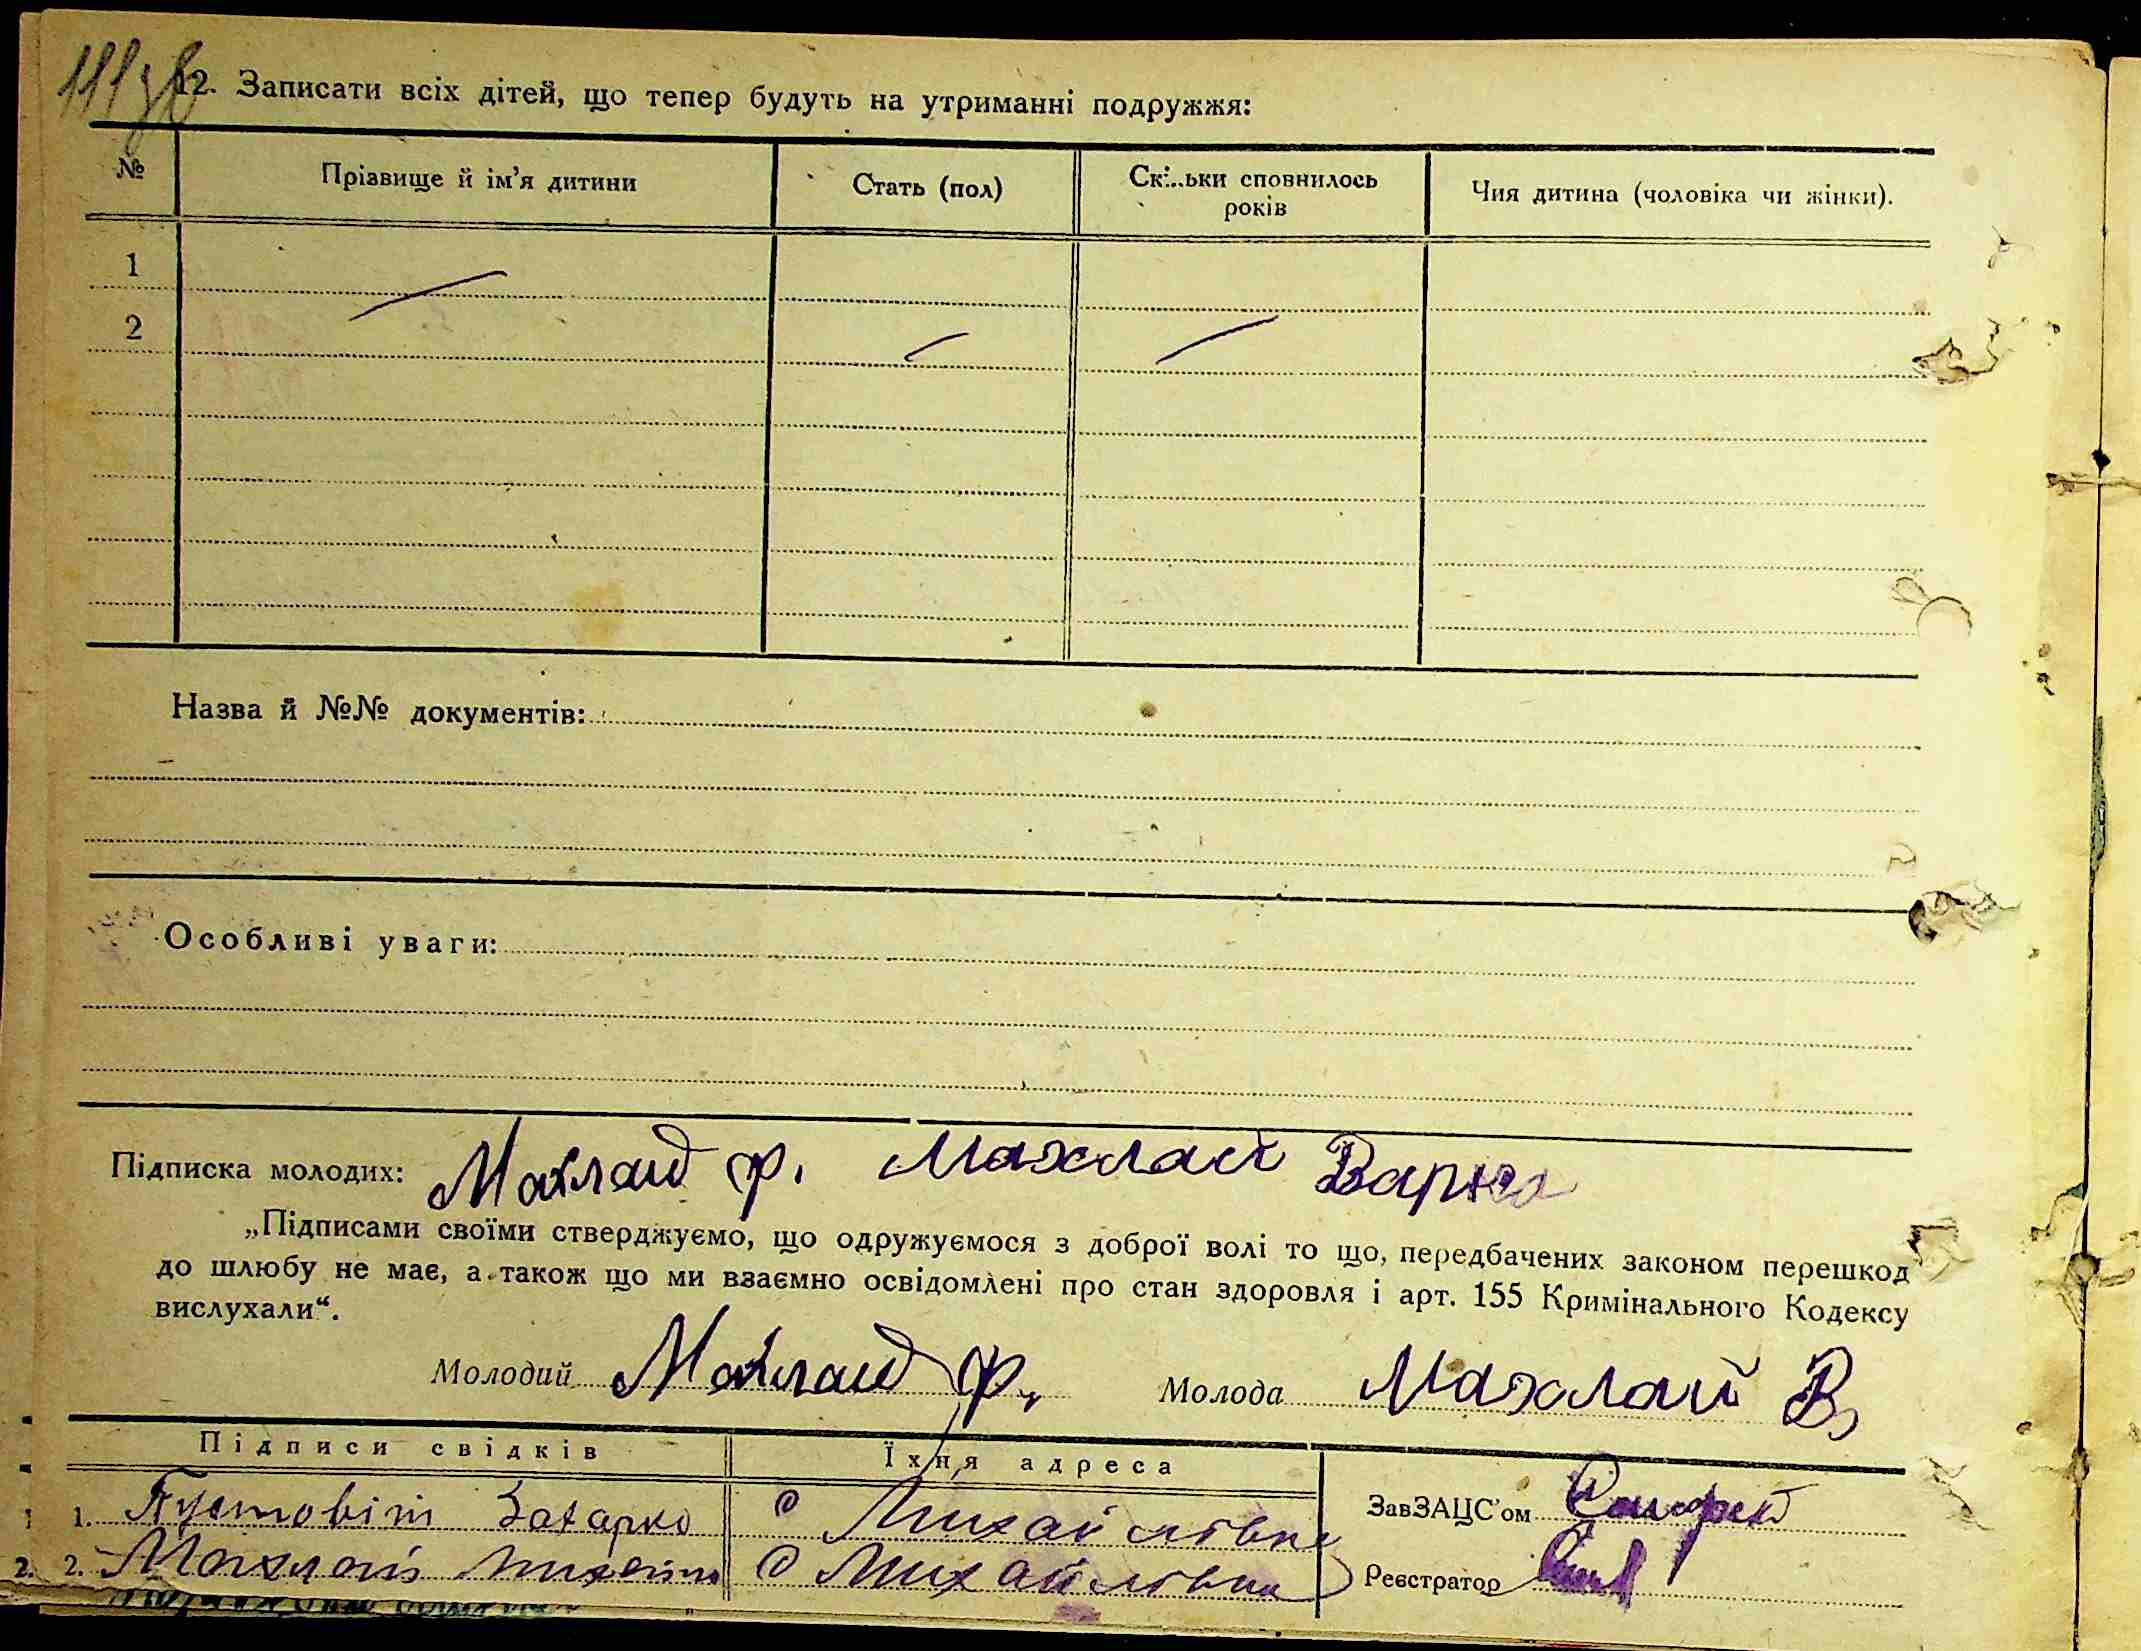 12. Записати всіх дітей, що тепер будуть на утриманні подружжя:
№ Прізвище й ім'я дитини Стать (пол) Скільки сповнилось років Чия дитина (чоловіка чи жінки).
1
2
Назва й №№ документів:
Особливі уваги:
Підписка молодих: Махлай Ф. Махлай Варка
„Підписами своїми стверджуємо, що одружуємося з доброї волі то що, передбачених законом перешкод
до шлюбу не має, а також що ми взаємно освідомлені про стан здоровля і арт. 155 Кримінального Кодексу
вислухали“.
Молодий Махлай Ф. Молода Махлай В,
Підписи свідків Їхня адреса
1. Пустовіт Захарко с Михайлівка ЗавЗАЦС'ом
2. Махлай с Михайлівка Реєстратор